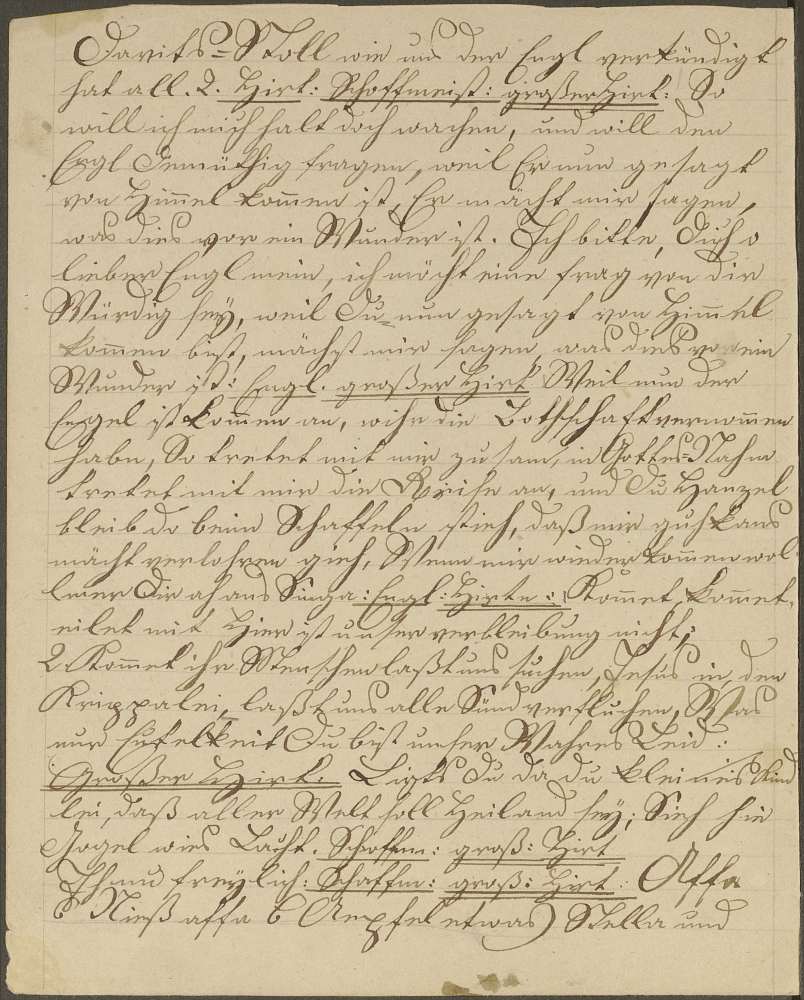 Davits=Stoll wie uns der Engl verkündigt
hat all. 2. Hirt: Schoffmeist: großer Hirt: So
will ich mich halt doch wachen, und will den
Engl Demüthig fragen, weil Er nun gesagt
von Himel komen ist, Er mächt mir sagen,
was dies vor ein Wunder ist. Ich bitte, Dich o
lieber Engl mein, ich möcht eine frag von dir
Würdig sey, weil Du nun gesagt von Himel
komen bist, mächst mir sagen, was dies vor ein
Wunder ist: Engl. großer Hirt Weil nun der
Engel ist komen an, wihr die Bothschaft vernomen
habn, So tretet mit mir zu sam, in Gottes=Nahm
tretet mit mir die Reise an, und Du Hanzel
bleib do beim Schaffeln stieh, daß mir guh kans
mächt verlohren gieh, Wenn mir wieder komen wol
lmer Dir ah aus Singa: Engl: Hirtn: Komet, komet,
eilet mit Hier ist unser verbleibung nicht;
2 Komet ihr Menschen laßt uns suchen, Jesus in den
Krippalei, laßt uns alle Sünd verfluchen, Was
nur Eufelkeit Du bist unser Wahres Leid:
Großer Hirt. Ligts Du da du kleines Kind
lei, daß aller Welt soll Heiland sey; Sieh hie
Jogel wies Lacht. Schoffm: groß: Hirt
Ih nu freylich: Schaffm: groß: Hirt: Affa
6 Nieß affa 6 Aepfel etwas) Stella und